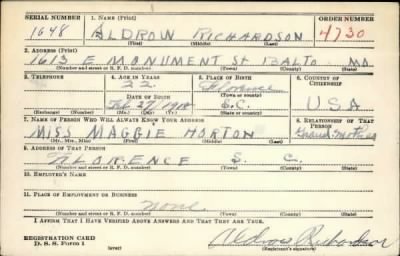 SERIAL NUMBER 1. NAME (Print) ORDER NUMBER
1648 ALDROW RICHARDSON 4730
(First) (Middle) (Last)
2. ADDRESS (Print)
1613 E MONUMENT St BALTO MD.
(Number and street or R. F. D. number) (Town) (County) (State)
3. TELEPHONE 4. AGE IN YEARS 5. PLACE OF BIRTH 6. COUNTRY OF CITIZENSHIP
22 Florence
DATE OF BIRTH (Town or county)
Feb 27 1918 S.C. USA
(Exchange) (Number) (Mo.) (Day) (Yr.) (State or country)
7. NAME OF PERSON WHO WILL ALWAYS KNOW YOUR ADDRESS 8. RELATIONSHIP OF THAT PERSON
MISS MAGGIE HORTON Grand-Mother
(Mr., Mrs., Miss) (First) (Middle) (Last)
9. ADDRESS OF THAT PERSON
FLORENCE S. C.
(Number and street or R. F. D. number) (Town) (County) (State)
10. EMPLOYER'S NAME
11. PLACE OF EMPLOYMENT OR BUSINESS
None
(Number and street or R. F. D. number) (Town) (County) (State)
I AFFIRM THAT I HAVE VERIFIED ABOVE ANSWERS AND THAT THEY ARE TRUE.
REGISTRATION CARD
D. S. S. Form 1 (over) Aldrow Richardson
(Registrant's signature)